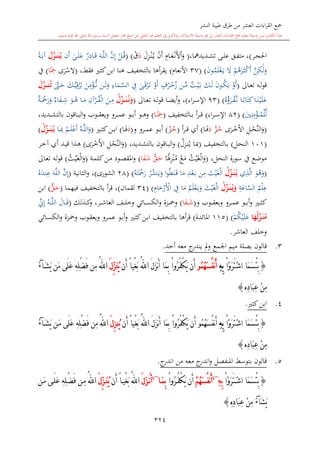 جمع القراءات العشر من طرق طيبة النشر
الحجر)، متفق على تشديدهما؛ (وَالْأَنْعَامِ أَن يُنزِلَ دَقَّ) (قُلْ إِنَّ اللَّهَ قَادِرٌ عَلَى أَن يُنَزِّلَ ءَايَةً
وَلَٰكِنَّ أَكْثَرَهُمْ لَا يَعْلَمُونَ) (٣٧ الأنعام) يقرأها بالتخفيف هنا ابن كثير فقط، (لاسْرَى حِمًا) في
قوله تعالى (أَوْ يَكُونَ لَكَ بَيْتٌ مِّن زُخْرُفٍ أَوْ تَرْقَىٰ فِي السَّمَاءِ وَلَن نُّؤْمِنَ لِرُقِيِّكَ حَتَّىٰ تُنَزِّلَ
عَلَيْنَا كِتَابًا نَّقْرَؤُهُ) (٩٣ الإسراء)، وأيضا قوله تعالى (وَنُنَزِّلُ مِنَ الْقُرْآنِ مَا هُوَ شِفَاءٌ وَرَحْمَةٌ
لِّلْمُؤْمِنِينَ) (٨٢ الإسراء) قرأ بالتخفيف (حِمًا) وهو أبو عمرو ويعقوب والباقون بالتشديد،
(وَالنَّحْلِ الْأُخْرَى حُزْ دَفَا) أي قرأ (حُزْ) أبو عمرو و(دَفَا) ابن كثير (وَاللَّهُ أَعْلَمُ بِمَا يُنَزِّلُ)
(١٠١ النحل) بالتخفيف (بِمَا يُنزِلُ) والباقون بالتشديد، (وَالنَّحْلِ الْأُخْرَى) هذا قيد أي آخر
موضع في سورة النحل، (وَالْغَيْثَ مَعْ مُنْزِلُهَا حَقٌّ شَفَا) والمقصود من كلمة (وَالْغَيْثَ) قوله تعالى
(وَهُوَ الَّذِي يُنَزِّلُ الْغَيْثَ مِن بَعْدِ مَا قَنَطُوا وَيَنشُرُ رَحْمَتَهُ) (٢٨ الشورى)، والثانية (إِنَّ اللَّهَ عِندَهُ
عِلْمُ السَّاعَةِ وَيُنَزِّلُ الْغَيْثَ وَيَعْلَمُ مَا فِي الْأَرْحَامِ) (٣٤ لقمان)، قرأ بالتخفيف فيهما (حَقٌّ) ابن
كثير وأبو عمرو ويعقوب و(شَفَا) وحمزة والكسائي وخلف العاشر، وكذلك (قَالَ اللَّهُ إِنِّي
مُنَزِّلُهَا عَلَيْكُمْ) (١١٥ المائدة) قرأها بالتخفيف ابن كثير وأبو عمرو ويعقوب وحمزة والكسائي
وخلف العاشر.
٣. قالون بصلة ميم الجمع ولم يندرج معه أحد.
﴿ بِئْسَمَا اشْتَرَوْا بِهِ أَنفُسَهُمُو أَن يَكْفُرُوا بِمَا أَنزَلَ اللَّهُ بَغْيًا أَن يُنَزِّلَ اللَّهُ مِن فَضْلِهِ عَلَىٰ مَن يَشَاءُ
مِنْ عِبَادِهِ ﴾
٤. ابن كثير.
﴿ بِئْسَمَا اشْتَرَوْا بِهِ أَنفُسَهُمُو أَن يَكْفُرُوا بِمَا أَنزَلَ اللَّهُ بَغْيًا أَن يُنزِلَ اللَّهُ مِن فَضْلِهِ عَلَىٰ مَن يَشَاءُ
مِنْ عِبَادِهِ ﴾
٥. قالون بتوسط المنفصل واندرج معه من اندرج.
﴿ بِئْسَمَا اشْتَرَوْا بِهِ أَنفُسَهُمْ أَن يَكْفُرُوا بِمَا أَنزَلَ اللَّهُ بَغْيًا أَن يُنَزِّلَ اللَّهُ مِن فَضْلِهِ عَلَىٰ مَن
يَشَاءُ مِنْ عِبَادِهِ ﴾
٣٢٤